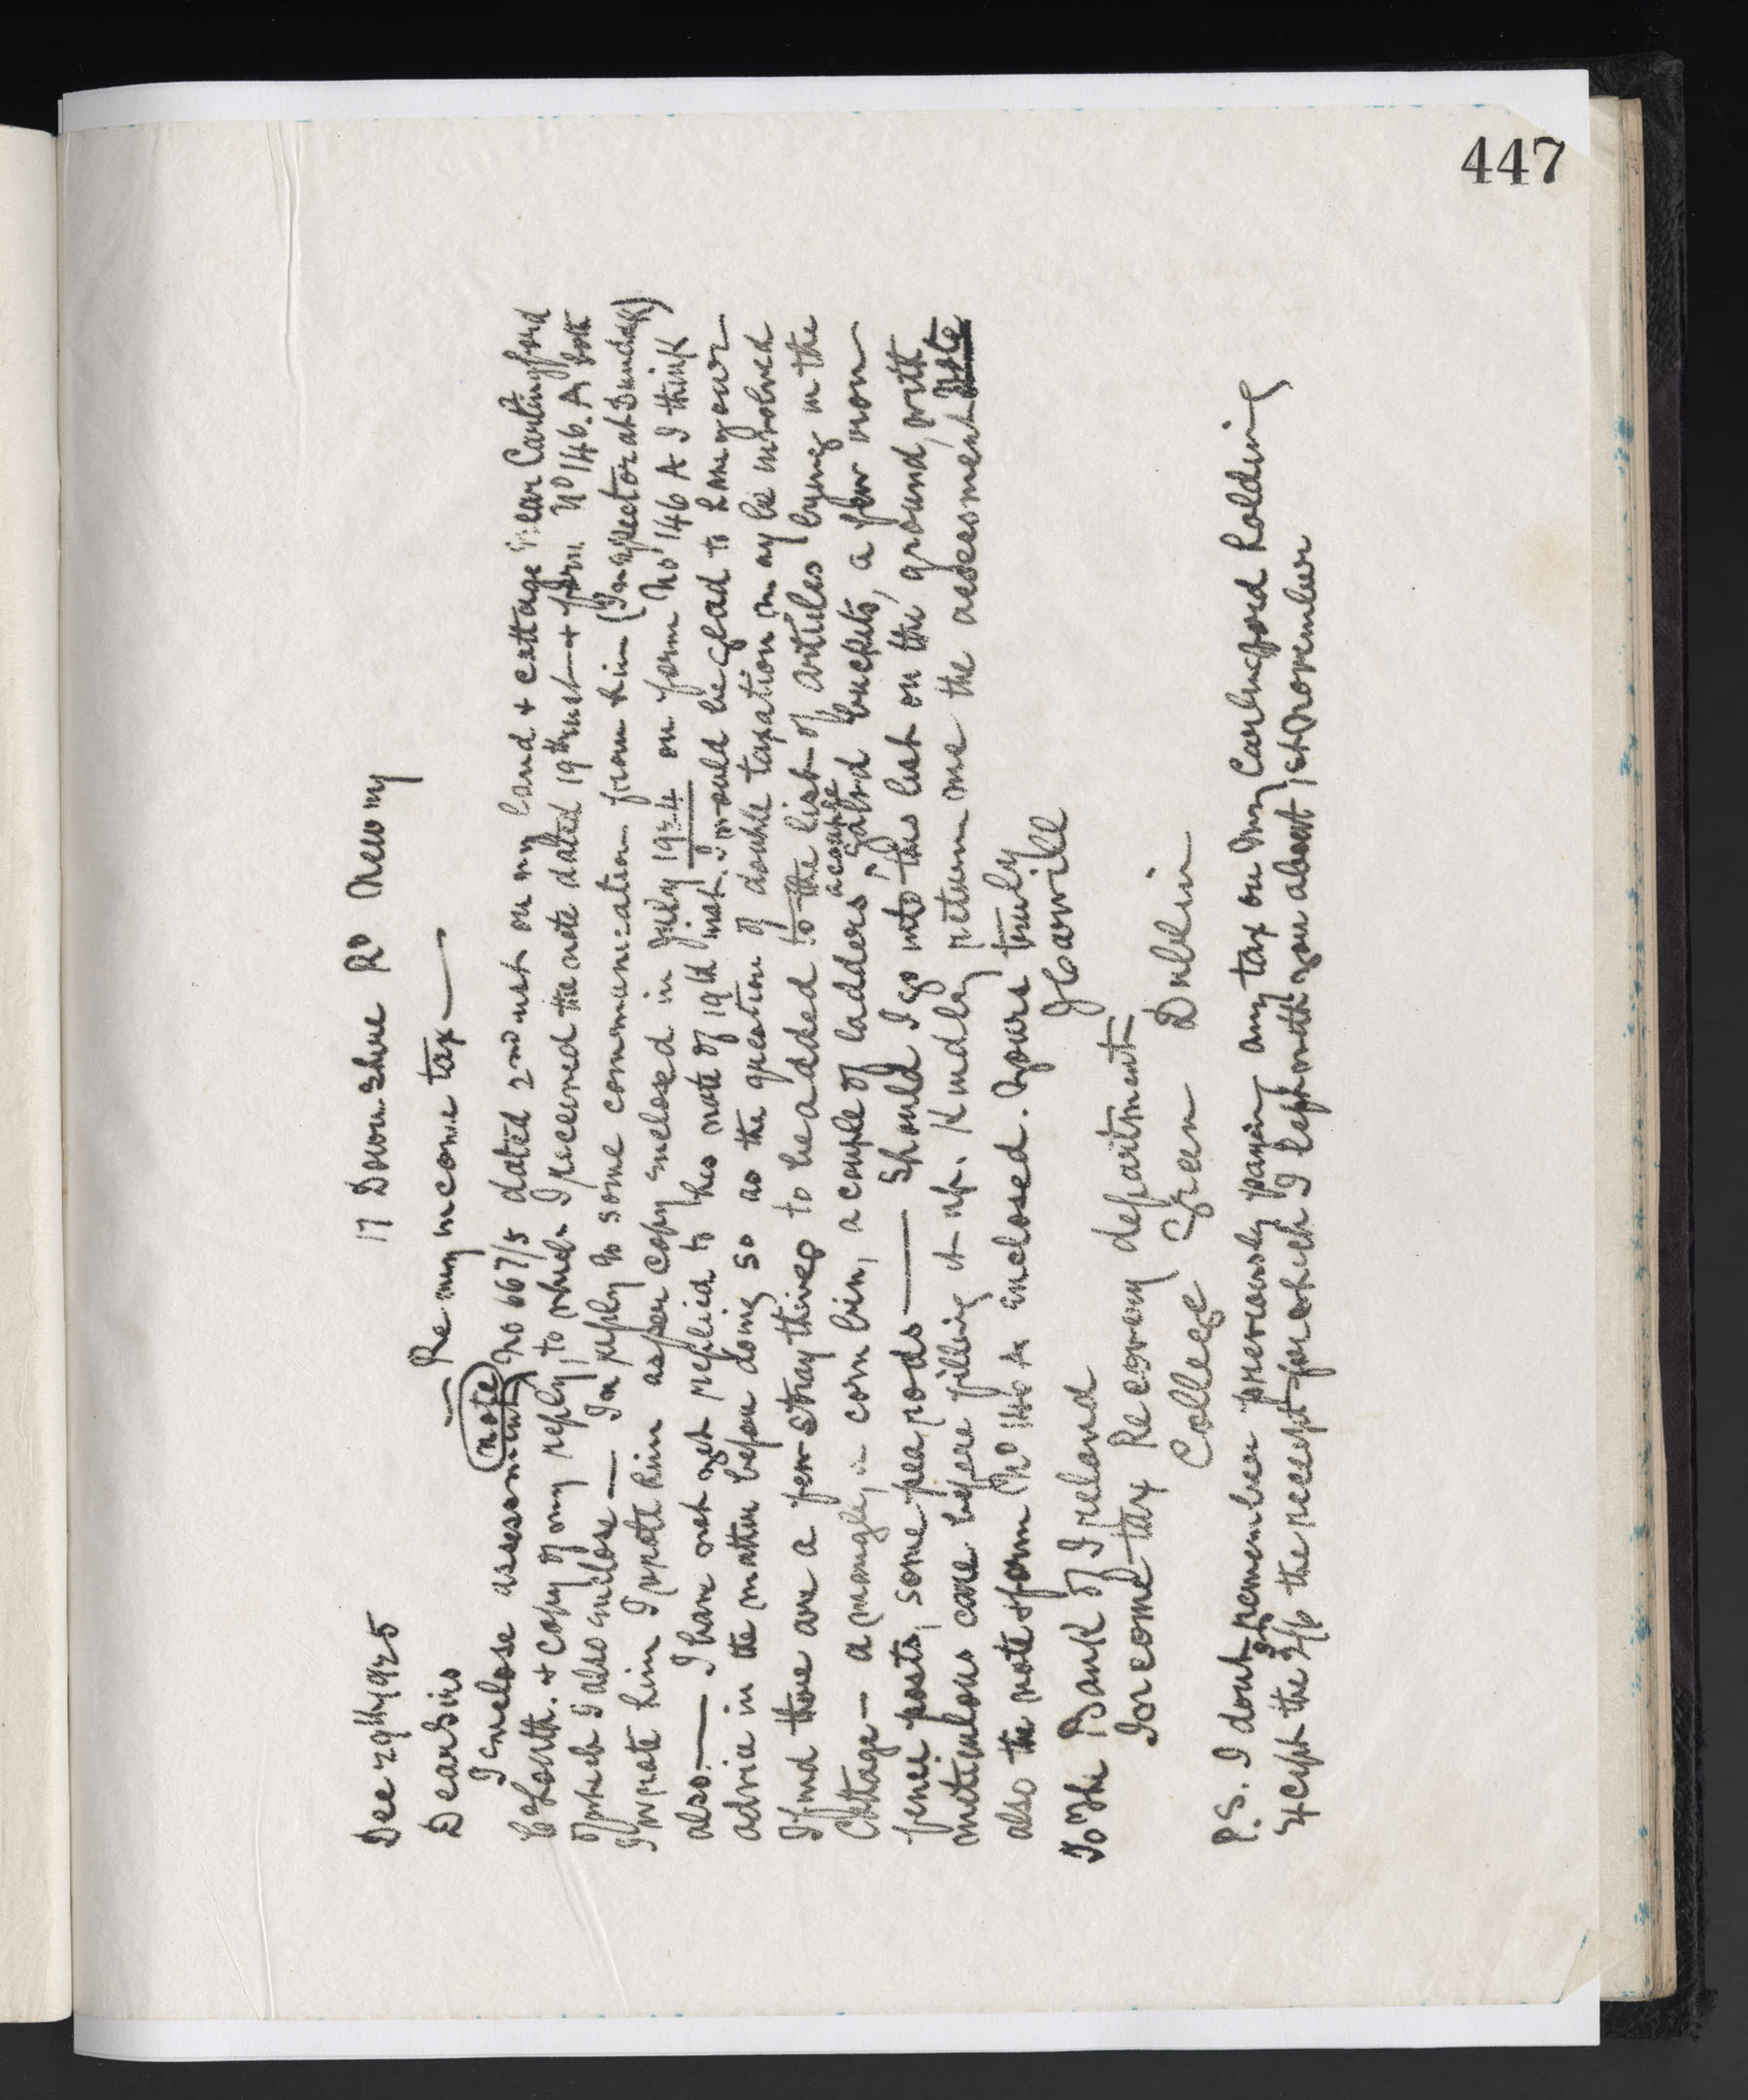 447
Dec 29th 1925 17 Downshire Rd Newry
Dear Sirs
Re my income tax —
I enclose assessment note No 667/5 dated 2nd inst on my land & cottage near Carlingford
Co Louth. & copy of my reply, to which I received the note dated 19th inst — & form No 146. A both
of which I also enclose — In reply to some communication from him (Inspector at Dundalk)
I wrote him I wrote him as per copy enclosed in July 1924 on form No 146 A I think
also. — I have not yet replied to his note of 19th inst. I would be glad to have your
advice in the matter before doing so as the question of double taxation may be involved
I find there are a few stray things to be added to the list of articles lying in the
Cottage — a mangle, a corn bin, a couple of ladders a couple galvd buckets, a few iron
fence posts, some pea rods — Should I go into this list on the ground, with
meticulous care before filling it up. Kindly return me the assessment note
also the note & form No 146 A enclosed. Yours truly
To The Bank of Ireland
Income tax Recovery department
College Green Dublin
P.S. I dont remember previously paying any tax on my Carlingford holding
except the the receipt for which I left with you about 1st November